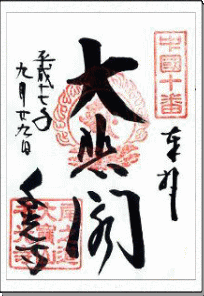 中國十番
奉拝
大悲閣
平成十七年
九月廿九日
千光寺